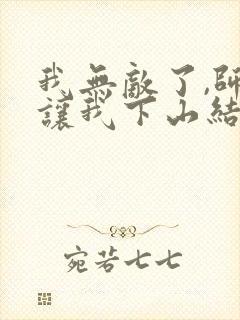 我無敵了,師
讓我下山結
宛若七七